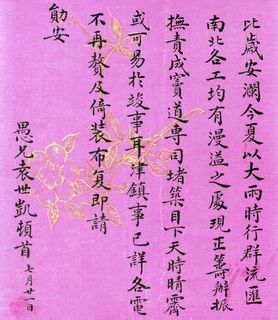 比歲安瀾今夏以大雨時行群流匯
南北各工均有漫溢之處現正籌辦振
撫責成竇道專司堵築目下天時晴霽
或可易於竣事耳津鎮事已詳各電
不再贅及倚裝布复即請
勛安
愚兄袁世凱頓首
七月廿一日